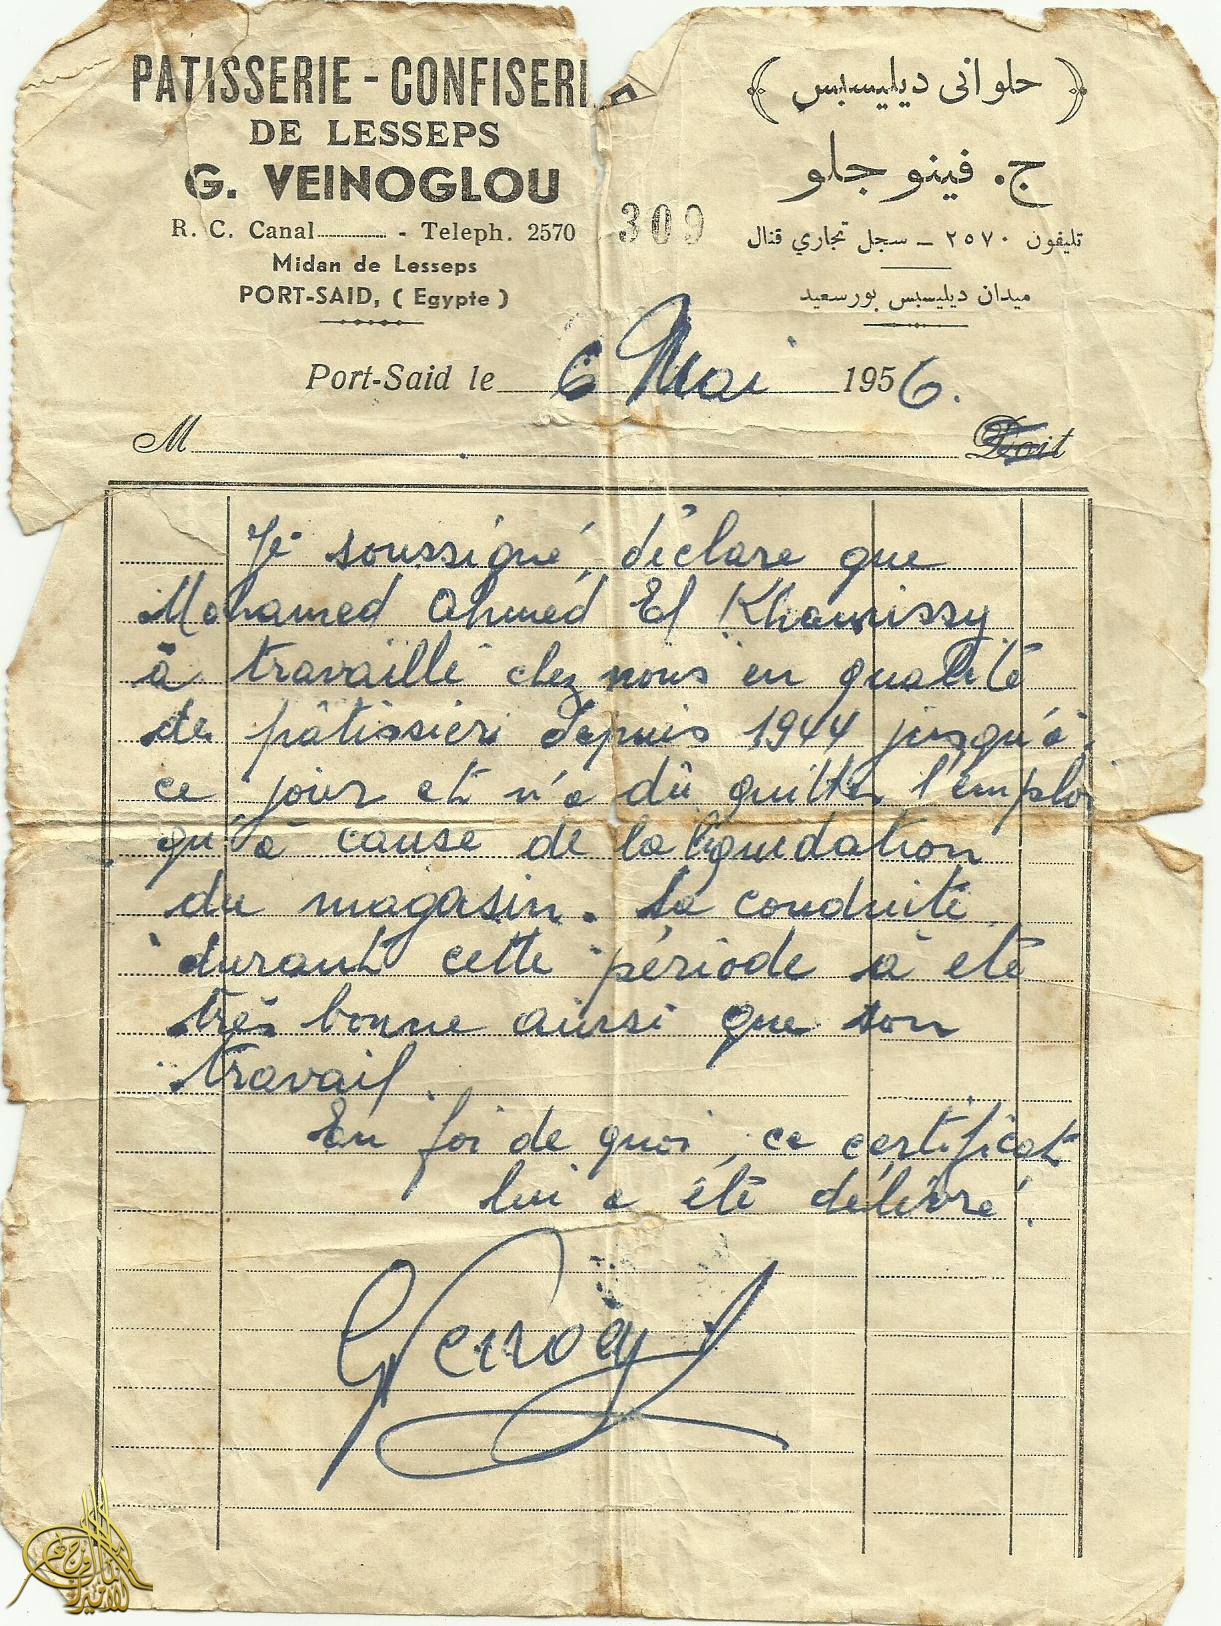 PATISSERIE - CONFISERIE
DE LESSEPS
G. VEINOGLOU
R. C. Canal - Teleph. 2570
Midan de Lesseps
PORT-SAID, ( Egypte )
309
( حلوانى ديليسبس )
ج. فينو جلو
تليفون ٢٥٧٠ – سجل تجاري قنال
ميدان ديليسبس بورسعيد
Port-Said le 6 Mai 1956.
M Doit
Je soussigné, déclare que
Mohamed Ahmed El Khamissy
à travaillé chez nous en qualité
de pâtissier depuis 1944 jusqu'à
ce jour et n'a dû quitter l'emploi
qu'à cause de la liquidation
du magasin. Sa conduite
durant cette période à été
très bonne aussi que son
travail.
En foi de quoi, ce certificat
lui a été délivré.